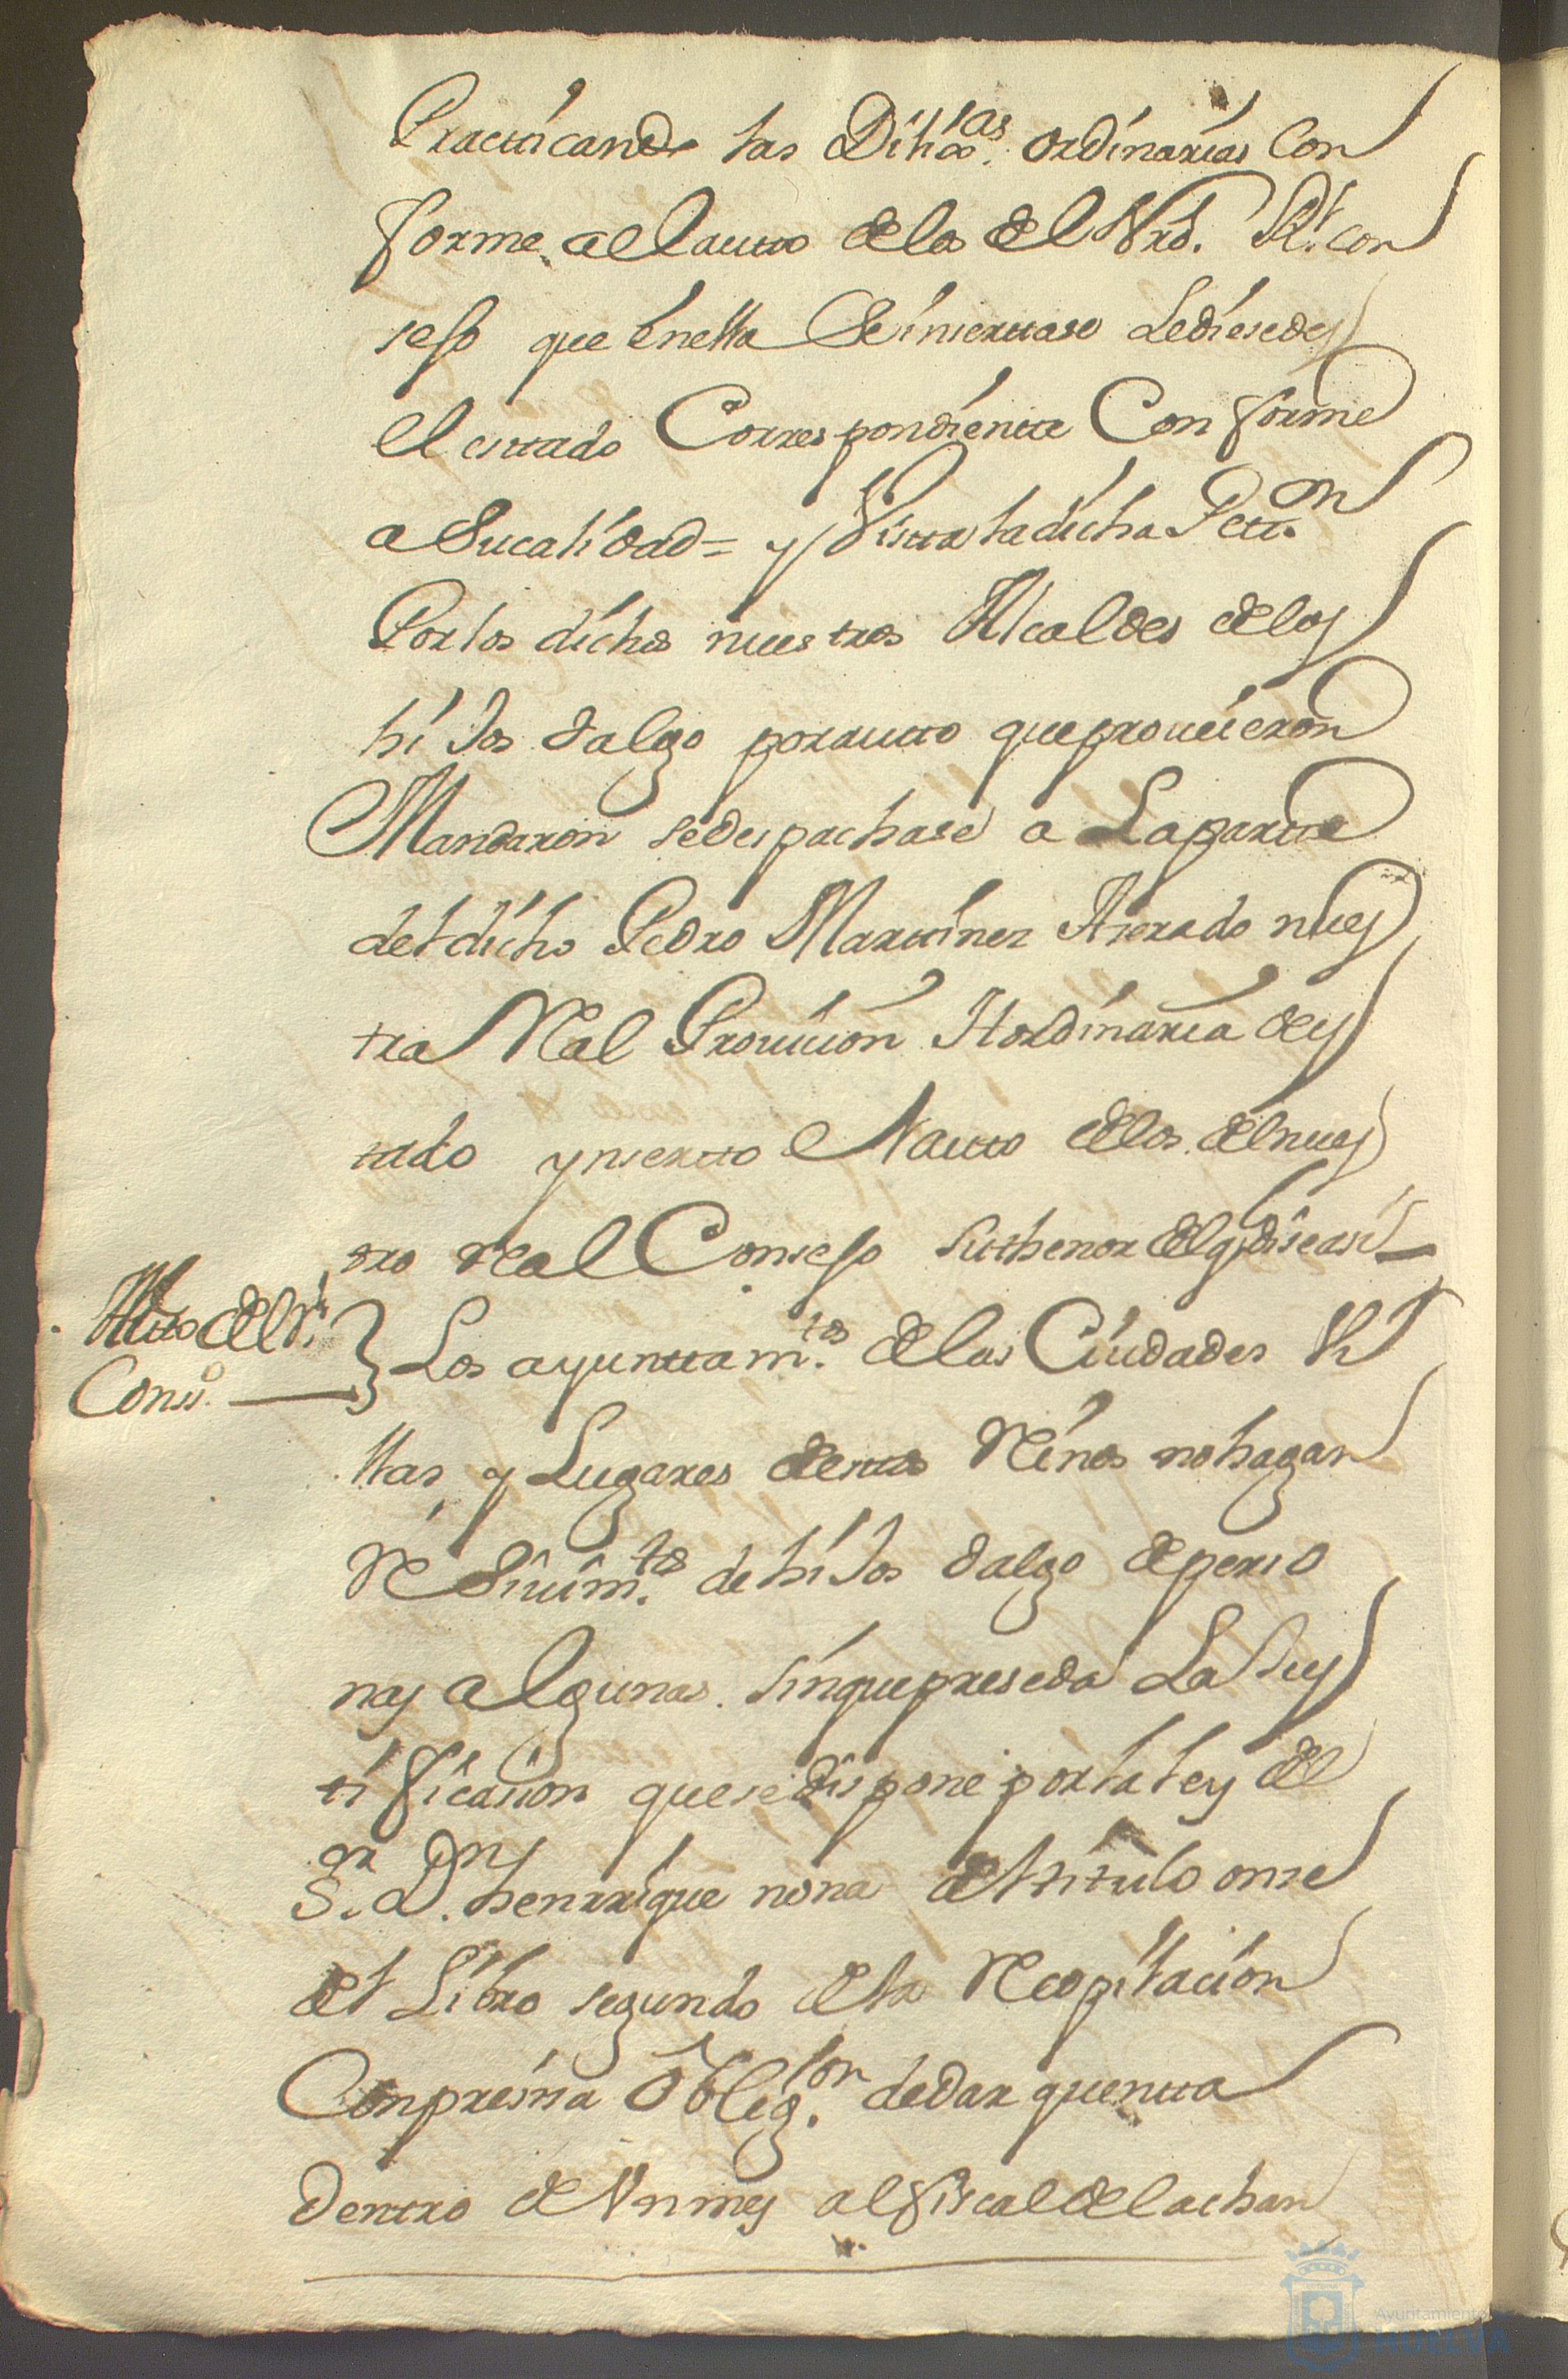 Practticando las Dilixas. ordinarias Con
forme al lautto de los del Nro. Rl. con
sejo que en ella Se insertase Le diesedes
el esttado Correspondientte Conforme
a Sucalidad = y Vistta la dicha Petton.
Por los dichos nuestros Alcaldes delos
hiJos dalgo por autto que proueieron
Mandaron se despachase a La partte
del dicho Pedro Marttinez nues
tra Real Prouicion Hordinaria des
tado ynsertto el autto delos del nues
tro real Consejo Suthenor del q. dise asi
Autto del Rl.
Conso.
Los ayunttamtos. de las Ciudades Vi
llas y Lugares desttos Reinos no hagan
Resiuimtos. de hiJos dalgo de perso
nas algunas sin que preseda La Jus
tificasion que se dispone por la ley del
Sor. Dn. henrrique nona del titulo onse
del Libro segundo dela Recopilacion
Con presisa Obligon. de dar quentta
Dentro de Vn mes al fiscal de la chan
Ayuntamiento de
HUELVA